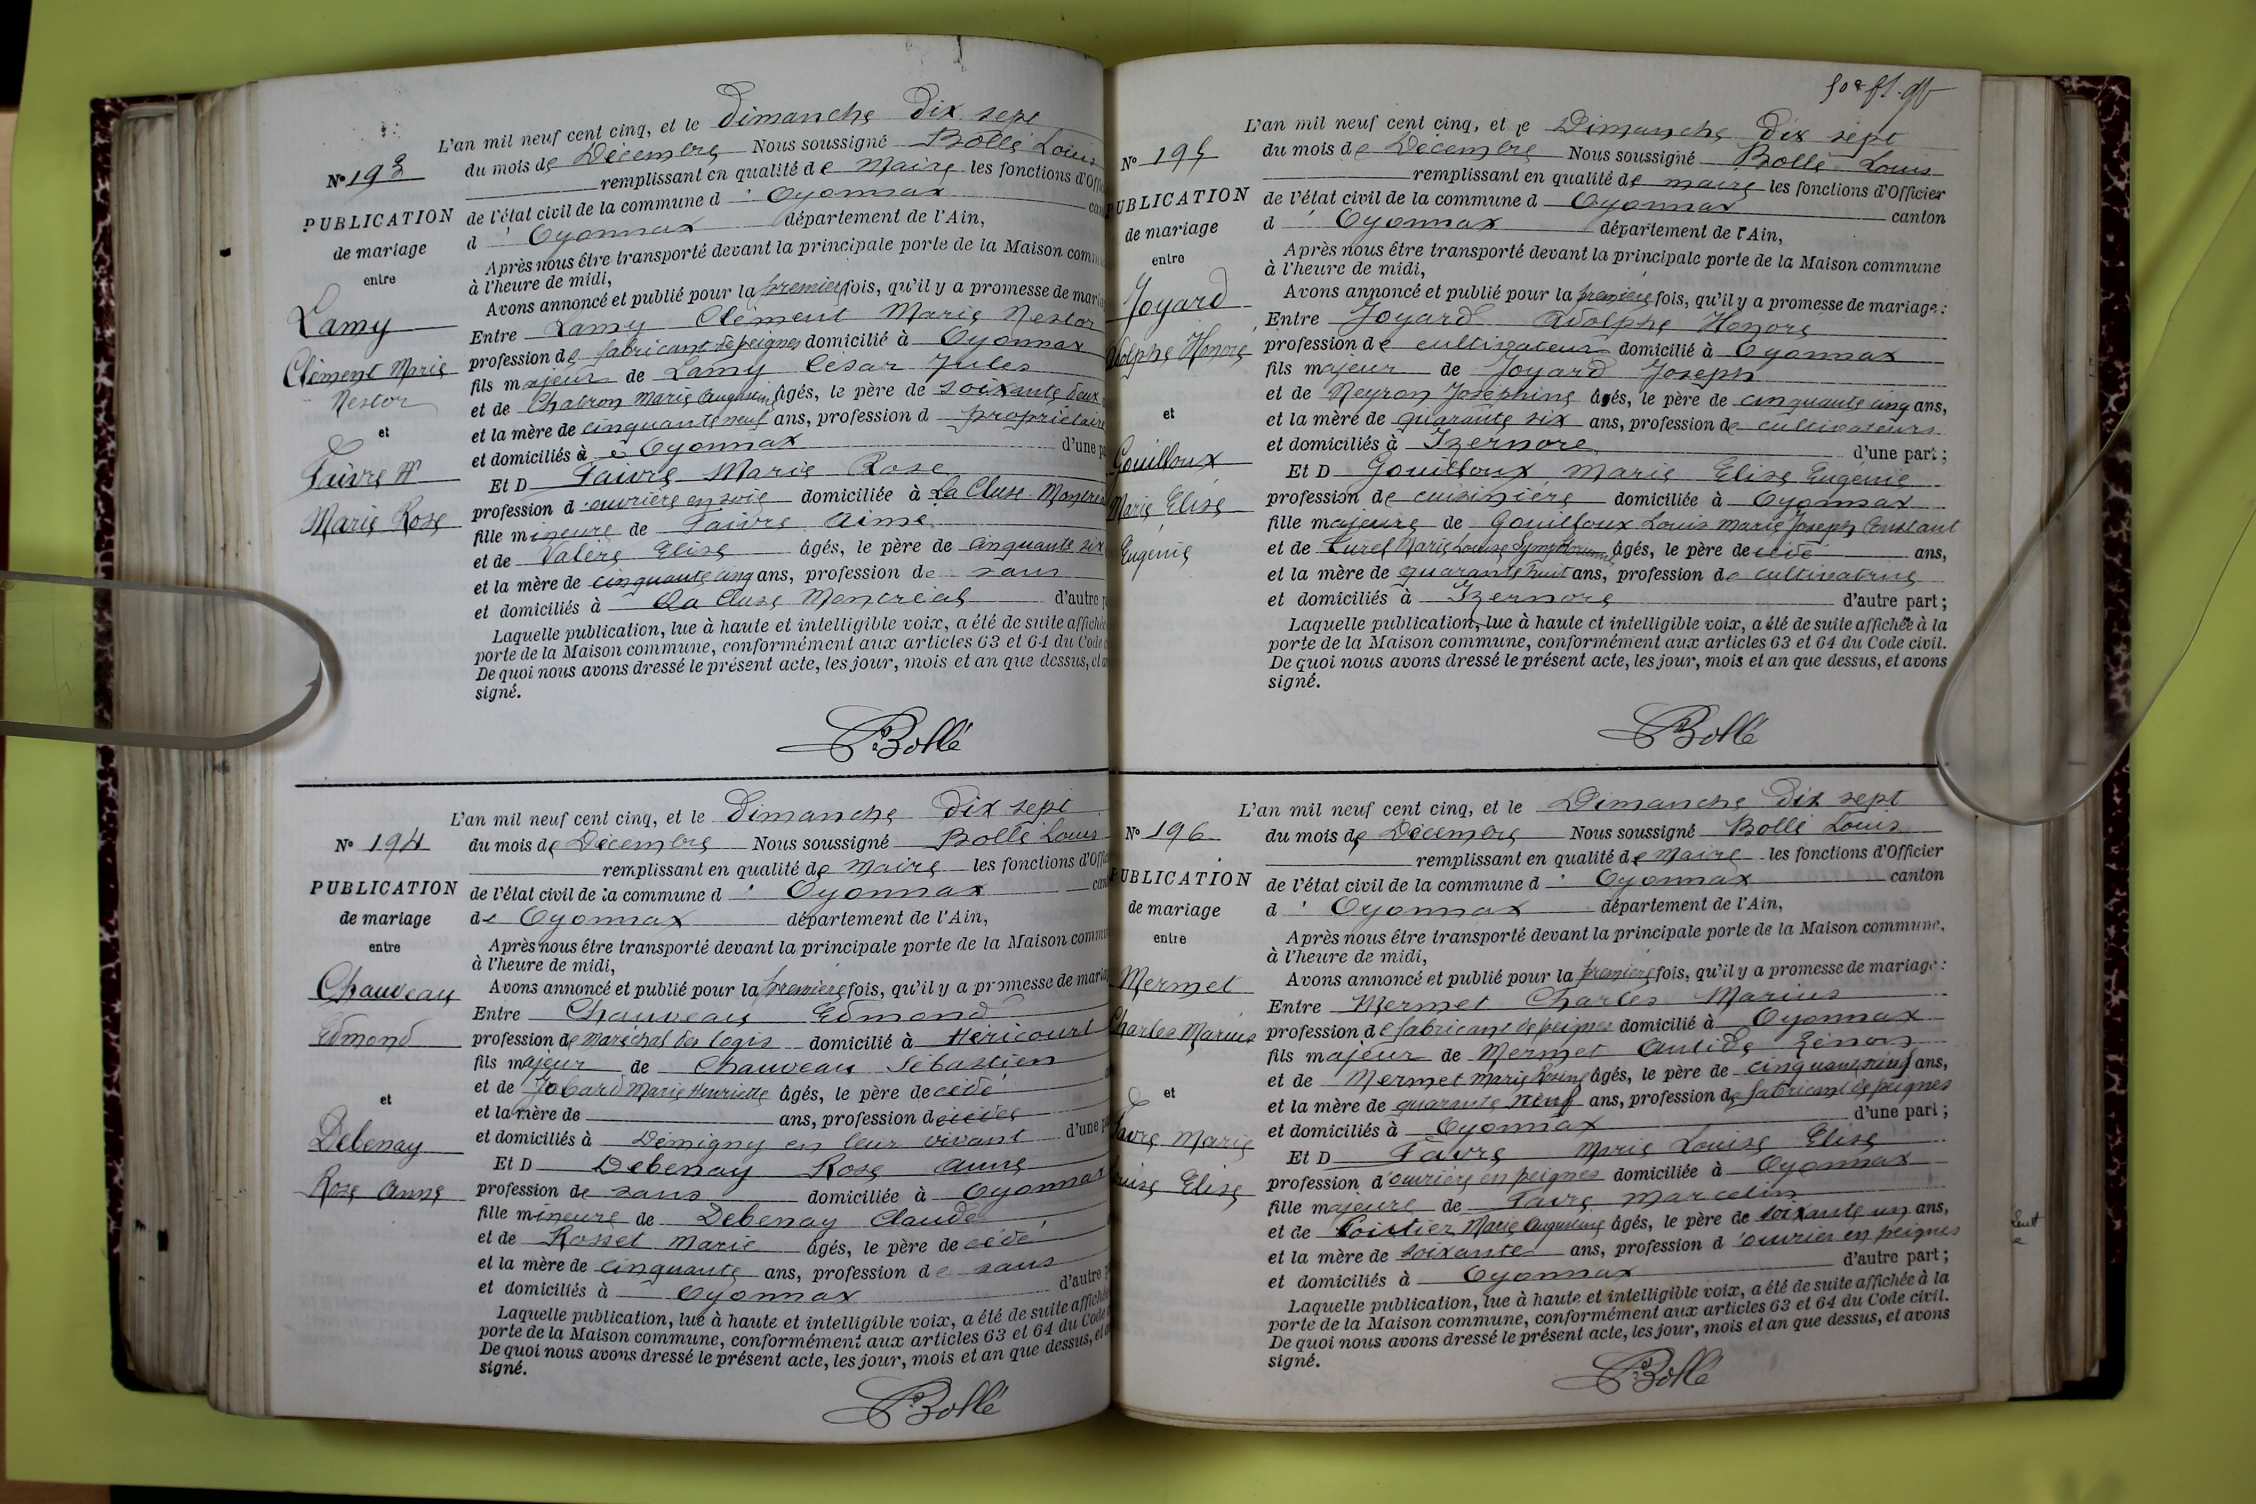 L'an mil neuf cent cinq, et le Dimanche Dix sept
N° 193
du mois de Décembre Nous soussigné Bollé Louis
remplissant en qualité de Maire les fonctions d'Offi
PUBLICATION
de mariage
entre
de l'état civil de la commune d' Oyonnax can
d' Oyonnax département de l'Ain,
Après nous être transporté devant la principale porte de la Maison comm
à l'heure de midi,
Avons annoncé et publié pour la première fois, qu'il y a promesse de maria
Lamy
Clément Marie
Nestor
et
Faivre
Marie Rose
Entre Lamy Clément Marie Nestor
profession de fabricant de peignes domicilié à Oyonnax
fils majeur de Lamy César Jules
et de Chatron Marie Augustine âgés, le père de soixante deux
et la mère de cinquante neuf ans, profession d propriétaire
et domiciliés à Oyonnax d'une pa
Et D Faivre Marie Rose
profession d'ouvrière en soie domiciliée à La Cluse Montré
fille mineure de Faivre Aimé
et de Valère Elise âgés, le père de cinquante six
et la mère de cinquante cinq ans, profession de sans
et domiciliés à La Cluse Montréal d'autre p
Laquelle publication, lue à haute et intelligible voix, a été de suite affichée
porte de la Maison commune, conformément aux articles 63 et 64 du Code c
De quoi nous avons dressé le présent acte, les jour, mois et an que dessus, et a
signé.
Bollé
L'an mil neuf cent cinq, et le Dimanche Dix sept
N° 194
du mois de Décembre Nous soussigné Bollé Louis
remplissant en qualité de Maire les fonctions d'Offi
PUBLICATION
de mariage
entre
de l'état civil de la commune d' Oyonnax can
de Oyonnax département de l'Ain,
Après nous être transporté devant la principale porte de la Maison commu
à l'heure de midi,
Avons annoncé et publié pour la première fois, qu'il y a promesse de maria
Chauveau
Edmond
et
Debenay
Rose Anne
Entre Chauveau Edmond
profession de maréchal des logis domicilié à Héricourt
fils majeur de Chauveau Sébastien
et de Jobard Marie Henriette âgés, le père decédé
et la mère de ans, profession décédés
et domiciliés à Demigny en leur vivant d'une pa
Et D Debenay Rose Anne
profession de sans domiciliée à Oyonnax
fille mineure de Debenay Claude
et de Rosset Marie âgés, le père decédé
et la mère de cinquante ans, profession de sans
et domiciliés à Oyonnax d'autre p
Laquelle publication, lue à haute et intelligible voix, a été de suite affichée
porte de la Maison commune, conformément aux articles 63 et 64 du Code
De quoi nous avons dressé le présent acte, les jour, mois et an que dessus, et
signé.
Bollé
L'an mil neuf cent cinq, et le Dimanche Dix sept
N° 195
du mois de Décembre Nous soussigné Bollé Louis
remplissant en qualité de maire les fonctions d'Officier
PUBLICATION
de mariage
entre
de l'état civil de la commune d Oyonnax canton
d' Oyonnax département de l'Ain,
Après nous être transporté devant la principale porte de la Maison commune
à l'heure de midi,
Avons annoncé et publié pour la première fois, qu'il y a promesse de mariage:
Joyard
Adolphe Honoré
et
Gouilloux
Marie Elise
Eugénie
Entre Joyard Adolphe Honoré
profession de cultivateur domicilié à Oyonnax
fils majeur de Joyard Joseph
et de Neyron Joséphine âgés, le père de cinquante cinq ans,
et la mère de quarante six ans, profession de cultivateurs
et domiciliés à Izernore d'une part;
Et D Gouilloux Marie Elise Eugénie
profession de cuisinière domiciliée à Oyonnax
fille majeure de Gouilloux Louis Marie Joseph Constant
et de Marie Louise âgés, le père decédé ans,
et la mère de quarante huit ans, profession de cultivatrice
et domiciliés à Izernore d'autre part;
Laquelle publication, lue à haute et intelligible voix, a été de suite affichée à la
porte de la Maison commune, conformément aux articles 63 et 64 du Code civil.
De quoi nous avons dressé le présent acte, les jour, mois et an que dessus, et avons
signé.
Bollé
L'an mil neuf cent cinq, et le Dimanche Dix sept
N° 196
du mois de Décembre Nous soussigné Bollé Louis
remplissant en qualité de Maire les fonctions d'Officier
PUBLICATION
de mariage
entre
de l'état civil de la commune d' Oyonnax canton
d' Oyonnax département de l'Ain,
Après nous être transporté devant la principale porte de la Maison commune,
à l'heure de midi,
Avons annoncé et publié pour la première fois, qu'il y a promesse de mariage:
Mermet
Charles Marius
et
Favre Marie
Louise Elise
Entre Mermet Charles Marius
profession de fabricant de peignes domicilié à Oyonnax
fils majeur de Mermet Antide Zénon
et de Mermet Marie Rosine âgés, le père de cinquante neuf ans,
et la mère de quarante neuf ans, profession de fabricant de peignes
et domiciliés à Oyonnax d'une part;
Et D Favre Marie Louise Elise
profession d'ouvrière en peignes domiciliée à Oyonnax
fille majeure de Favre Marcelin
et de Marie Augustine âgés, le père de soixante un ans,
et la mère de soixante ans, profession d'ouvrier en peignes
et domiciliés à Oyonnax d'autre part;
Laquelle publication, lue à haute et intelligible voix, a été de suite affichée à la
porte de la Maison commune, conformément aux articles 63 et 64 du Code civil.
De quoi nous avons dressé le présent acte, les jour, mois et an que dessus, et avons
signé.
Bollé